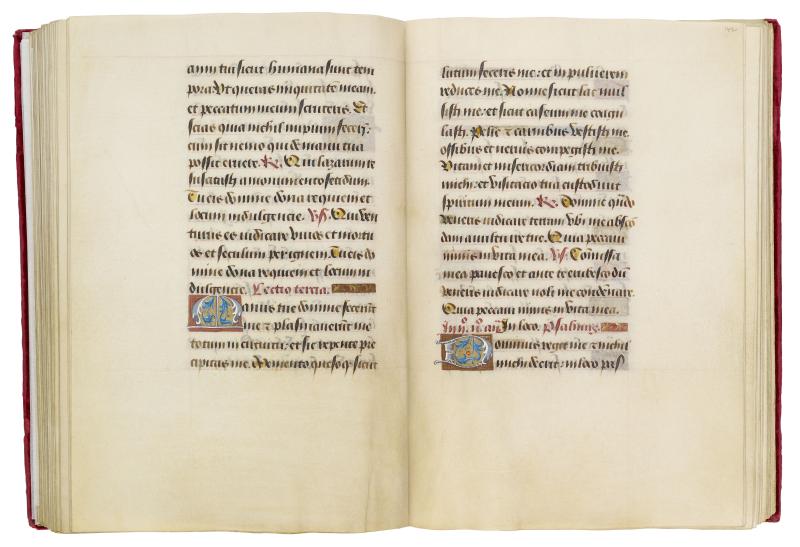 anni tui sicut humana sunt tem
pora: Ut queras iniquitatē meam.
et peccatum meum scruteris. Et
scias quia nichil impium fecerī:
cum sit nemo qui de manu tua
possit eruere. R. Qui lazarum re
suscitasti a monumento fetidum.
Tu eis domine dona requiem et
locum indulgencie. Vs. Qui ven
turus es iudicare vivos et mortu
os et seculum per ignem. Tu eis do
mine dona requiem et locum in
dulgencie. Lectio tercia.
Manus tue domine fecerūt
me et plasmaverunt me
totum in circuitu: et sic repente pre
cipitas me. Memento queso q̄ sicut
142
lutum feceris me: et in pulverem
reduces me. Nonne sicut lac mul
sisti me: et sicut caseum me coagu
lasti. Pelle et carnibus vestisti me.
ossibus et nervis compegisti me.
Vitam et misericordiam tribuisti
michi: et visitacio tua custodivit
spiritum meum. R. Domine qn̄do
veneris iudicare terram ubi me absco
dam a vultu ire tue. Quia peccavi
nimis in vita mea. Vs. Cōmissa
mea pavesco et ante te erubesco dū
veneris iudicare noli me condēnare.
Quia peccavi nimis in vita mea.
In loco. Psalmus.
Dominus regit me et nichil
michi deerit: in loco pas